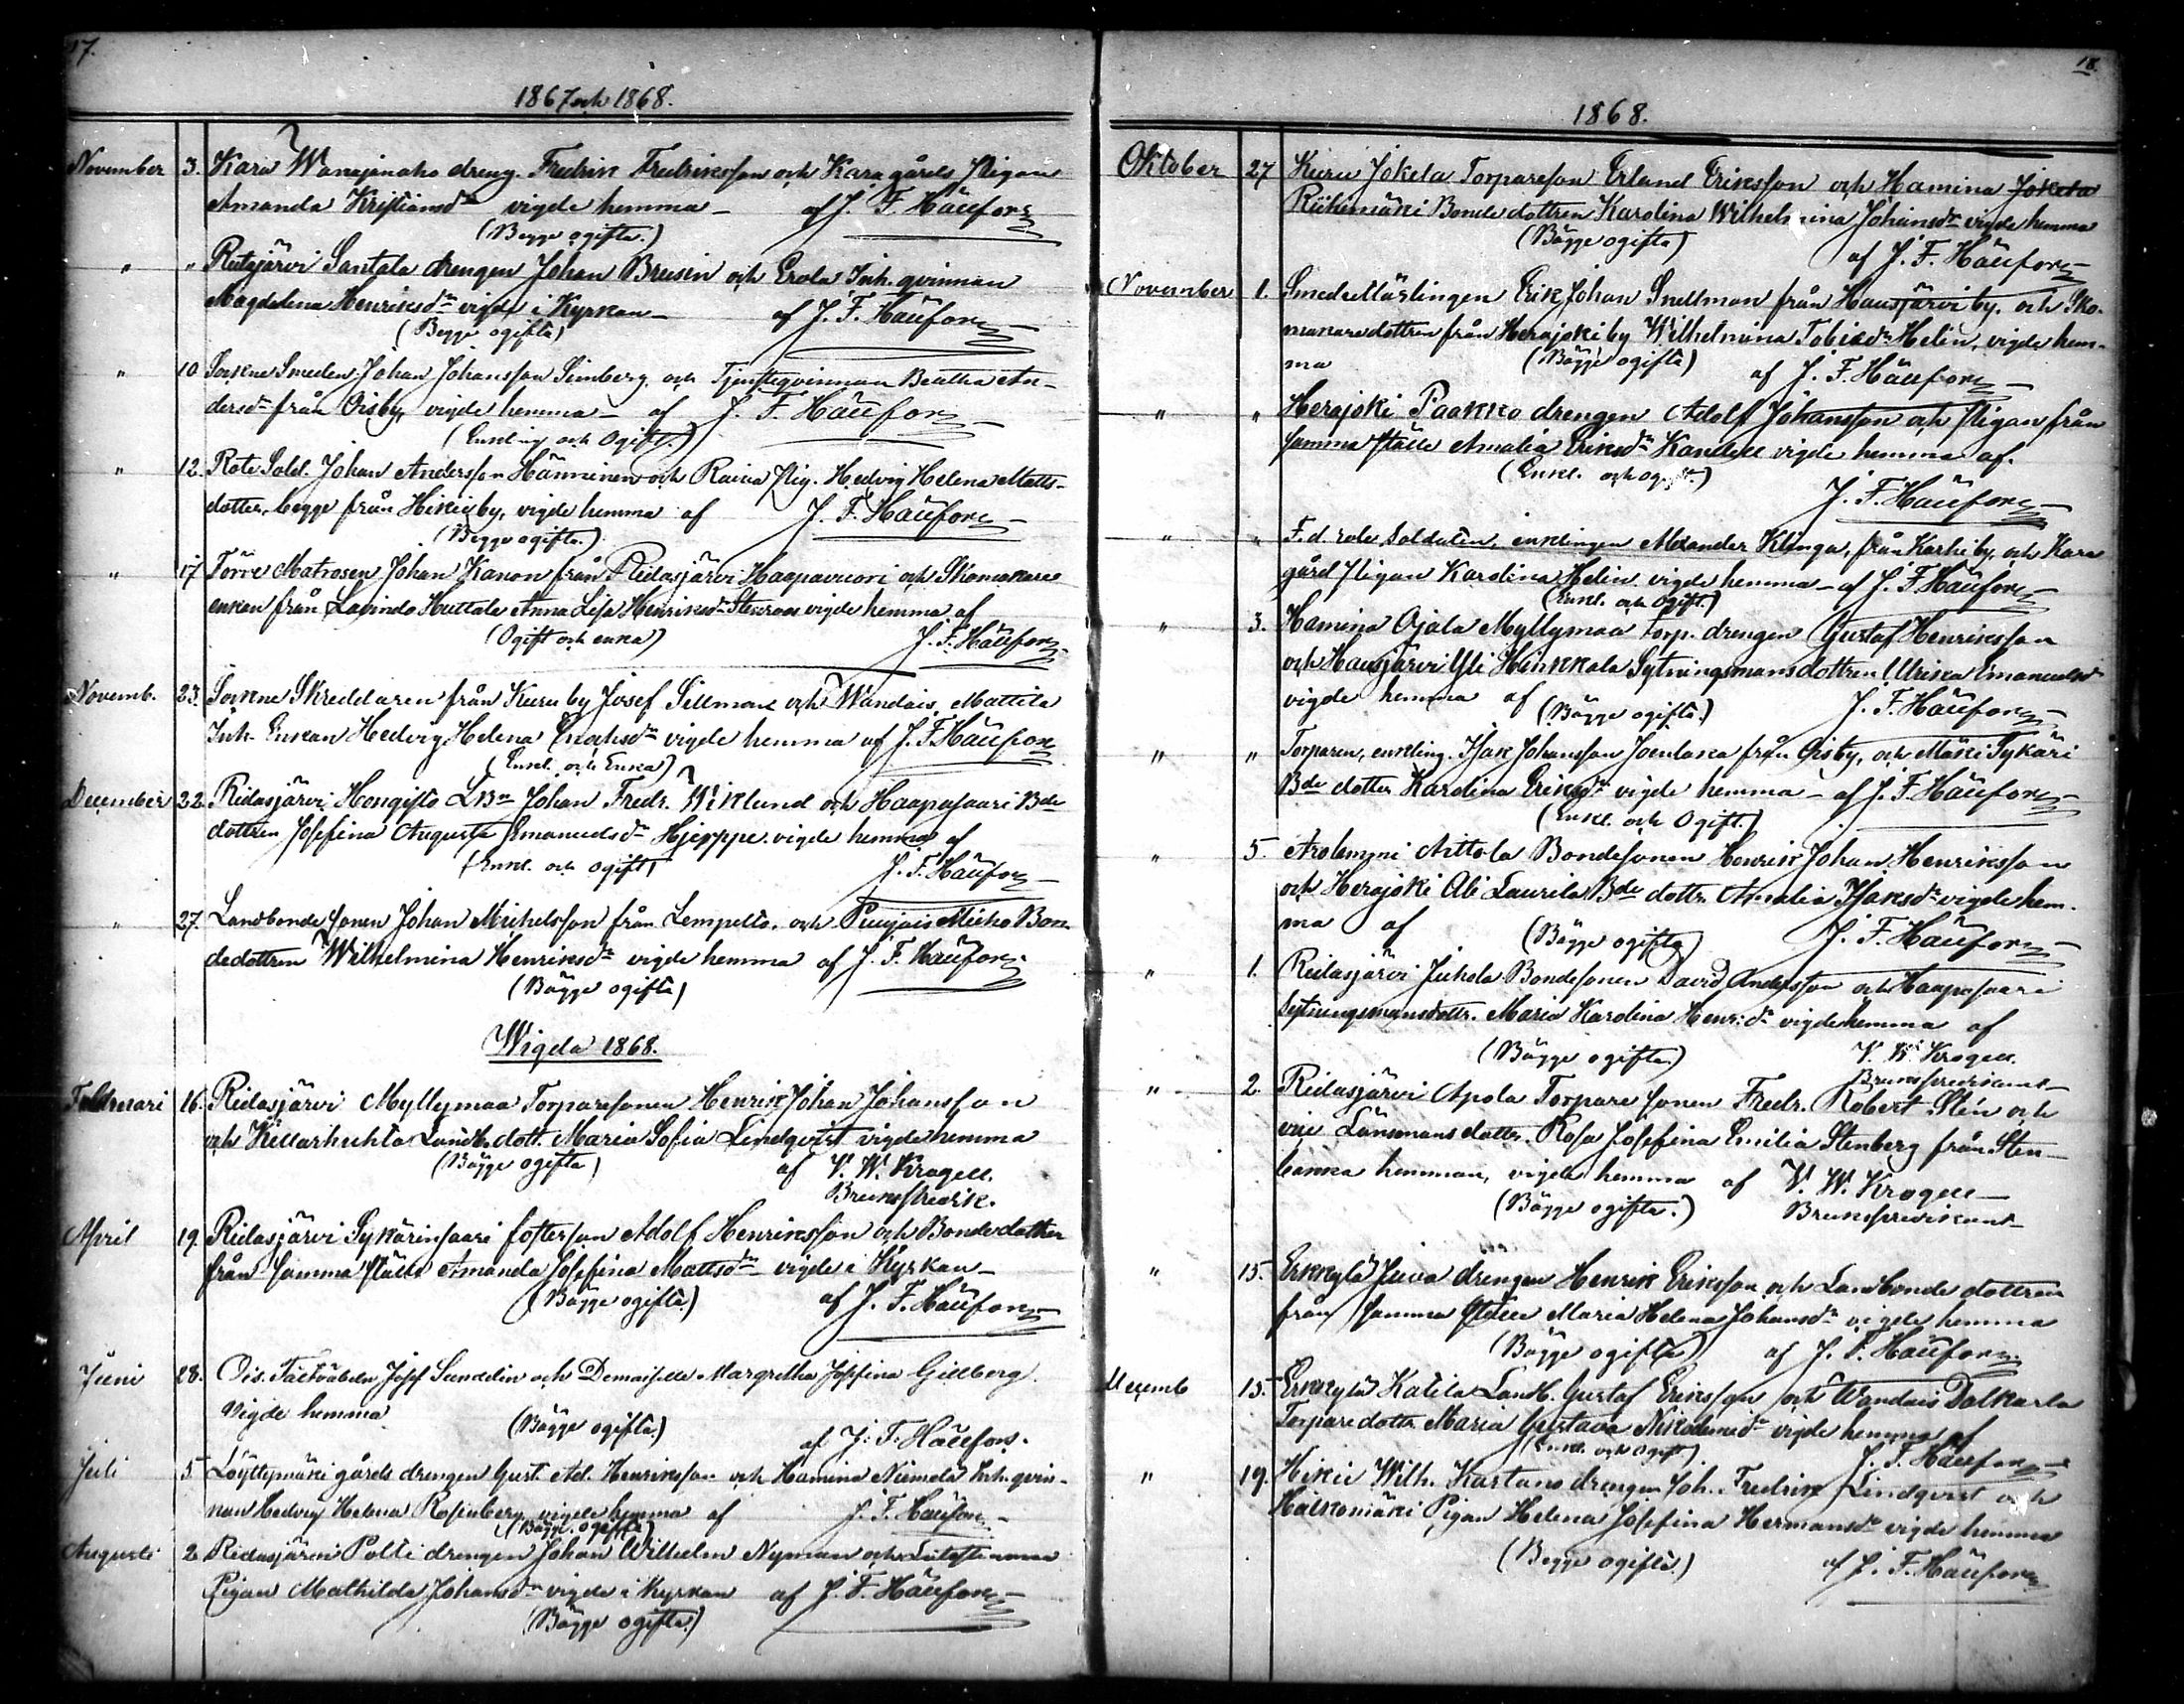 17.
1867 och 1868.
November 3. Kara Wanajanaho dreng. Fredrik Fredriksson och Kara gårds pigan
Amanda Kristiansdr vigde hemma – af J. F. Häufors
(Begge ogifta.)
" " Ridasjärvi Santala drengen Johan Brusin och Erola Inh. qvinnan
Magdalena Henriksdr vigde i Kyrkan – af J. F. Häufors
(Begge ogifta)
" 10 Sockne Smeden Johan Johansson Simberg och Tjensteqvinnan Beatha An-
dersdr från Oisby, vigde hemma – af J. F. Häufors
(Enkling och Ogift.)
" 12. Rote Sold. Johan Andersson Hänninen och pig. Hedvig Helena Matts-
dotter, begge från Hikiäby, vigde hemma af J. F. Häufors
(Begge ogifta.)
" 17 Förre Matrosen Johan Kanon från Ridasjärvi Haapavuori och Skomakare
enkan från Lavindo Huttala Anna Lisa Henriksdr Stenroos vigde hemma af
(Ogift och enka) J. F. Häufors
Novemb. 23. Sockne Skreddaren från Kuru by Josef Sillman och Wandais Mattila
Inh. Enkan Hedvig Helena Enochsdr vigde hemma af J. F. Häufors
(Enkl. och Enka)
December 22. Ridasjärvi Hongisto LBn Johan Fredr. Wiklund och Haapasaari Bde
dottren Josefina Augusta Emanuelsdr Hjerppe vigde hemma af
(Enkl. och ogift) J. F. Häufors
" 27. Landbonde sonen Johan Mickelsson från Lempelto, och Puujais Micko Bon
dedottren Wilhelmina Henriksdr vigde hemma af J. F. Häufors
(Bägge ogifta)
Wigda 1868.
Februari 16. Ridasjärvi Myllymaa Torparesonen Henrik Johan Johansson
och Kellarhuhta Landb. dott. Maria Sofia Lindqvist vigde hemma
(Bägge ogifta) af V. W. Krogell.
Brukspredik.
April 19. Ridasjärvi Sykärinsaari fosterson Adolf Henriksson och Bondedotter
från samma ställe Amanda Josefina Mattsdr vigde i Kyrkan –
(Bägge ogifta) af J. F. Häufors
Juni 28. Ois. Josef Sundelin och Demoiselle Margretha Josefina Gillberg
vigde hemma (Bägge ogifta)
af J. F. Häufors.
Juli 5 Löyttymäki gårds drengen Gust. Ad. Henriksson och Hamina Niemelä Inh. qvin-
nan Hedvig Helena Rosenberg vigde hemma af J. F. Häufors
(Bägge ogifta)
Augusti 2 Ridasjärvi Polti drengen Johan Wilhelm Nyman och
Pigan Mathilda Johansdr vigde i Kyrkan af J. F. Häufors
(Bägge ogifta.)
18.
1868.
Oktober 27 Kuru Jokela Torpareson Erland Eriksson och Hamina Jokela
Riihimäki Bonde dottren Karolina Wilhelmina Johansdr vigde hemma
(Bägge ogifta) af J. F. Häufors
November 1. Smedslärlingen Erik Johan Snellman från Hausjärvi by, och Sko-
makaredottren från Herajoki by Wilhelmina Tobiedr Helin, vigde hem-
ma (Bägge ogifta) af J. F. Häufors
" " Herajoki Paakko drengen Adolf Johansson och pigan från
samma ställe Amalia Eriksdr vigde hemma af.
(Enkl. och ogift.)
J. F. Häufors
" " F. d. rote Soldaten, enklingen Alexander Klinga, från Karhi by, och Kara
gård pigan Karolina Helin vigde hemma – af J. F. Häufors
(Enkl. och Ogift.)
" 3. Hamina Ojala Myllymaa Torp. drengen Gustaf Henriksson
och Hausjärvi Yli Hinkkala Sytningsmansdottren Ulrika Emanuelsdr
vigde hemma af (Bägge ogifta.) J. F. Häufors
" " Torparen, enkling. Isak Johansson från Oisby, och Mäki Sykäri
Bde dotter Karolina Eriksdr vigde hemma – af J. F. Häufors
(Enkl. och Ogift.)
" 5. Arolammi Aittola Bondesonen Henrik Johan Henriksson
och Herajoki Ali Laurila Bde dottr. Amalia Isaksdr vigde hem-
ma af (Bägge ogifta) J. F. Häufors
" 1. Ridasjärvi Juhola Bondesonen David Andersson och Haapasaari
Sytningsmansdottr. Maria Karolina Henr:dr vigde hemma af
(Bägge ogifta) V. W. Krogell.
Brukspredikant
" 2. Ridasjärvi Apola Torpare sonen Fredr. Robert Stén och
vice Länsmans dottr. Rosa Josefina Emilia Stenberg från Sten-
backa hemman, vigde hemma af V. W. Krogell –
(Bägge ogifta.) Brukspredikant
" 15. Erkkylä Juva drengen Henrik Eriksson och Landbonde dottren
från samma ställe Maria Helena Johansdr vigde hemma
(Bägge ogifta) af J. F. Häufors
Decemb 15. Erkkylä Katila Landb. Gustaf Eriksson och Wandais Dalkarla
Torpare dottr. Maria Gustava Nikodemidr vigde hemma af
(Enkl. och Ogift.) J. F. Häufors
" 19. Hikiä Wilh. Kartano drengen Joh. Fredrik Lindqvist och
Haikomäki Pigan Helena Josefina Hermansdr vigde hemma
(Begge ogifta.) af J. F. Häufors